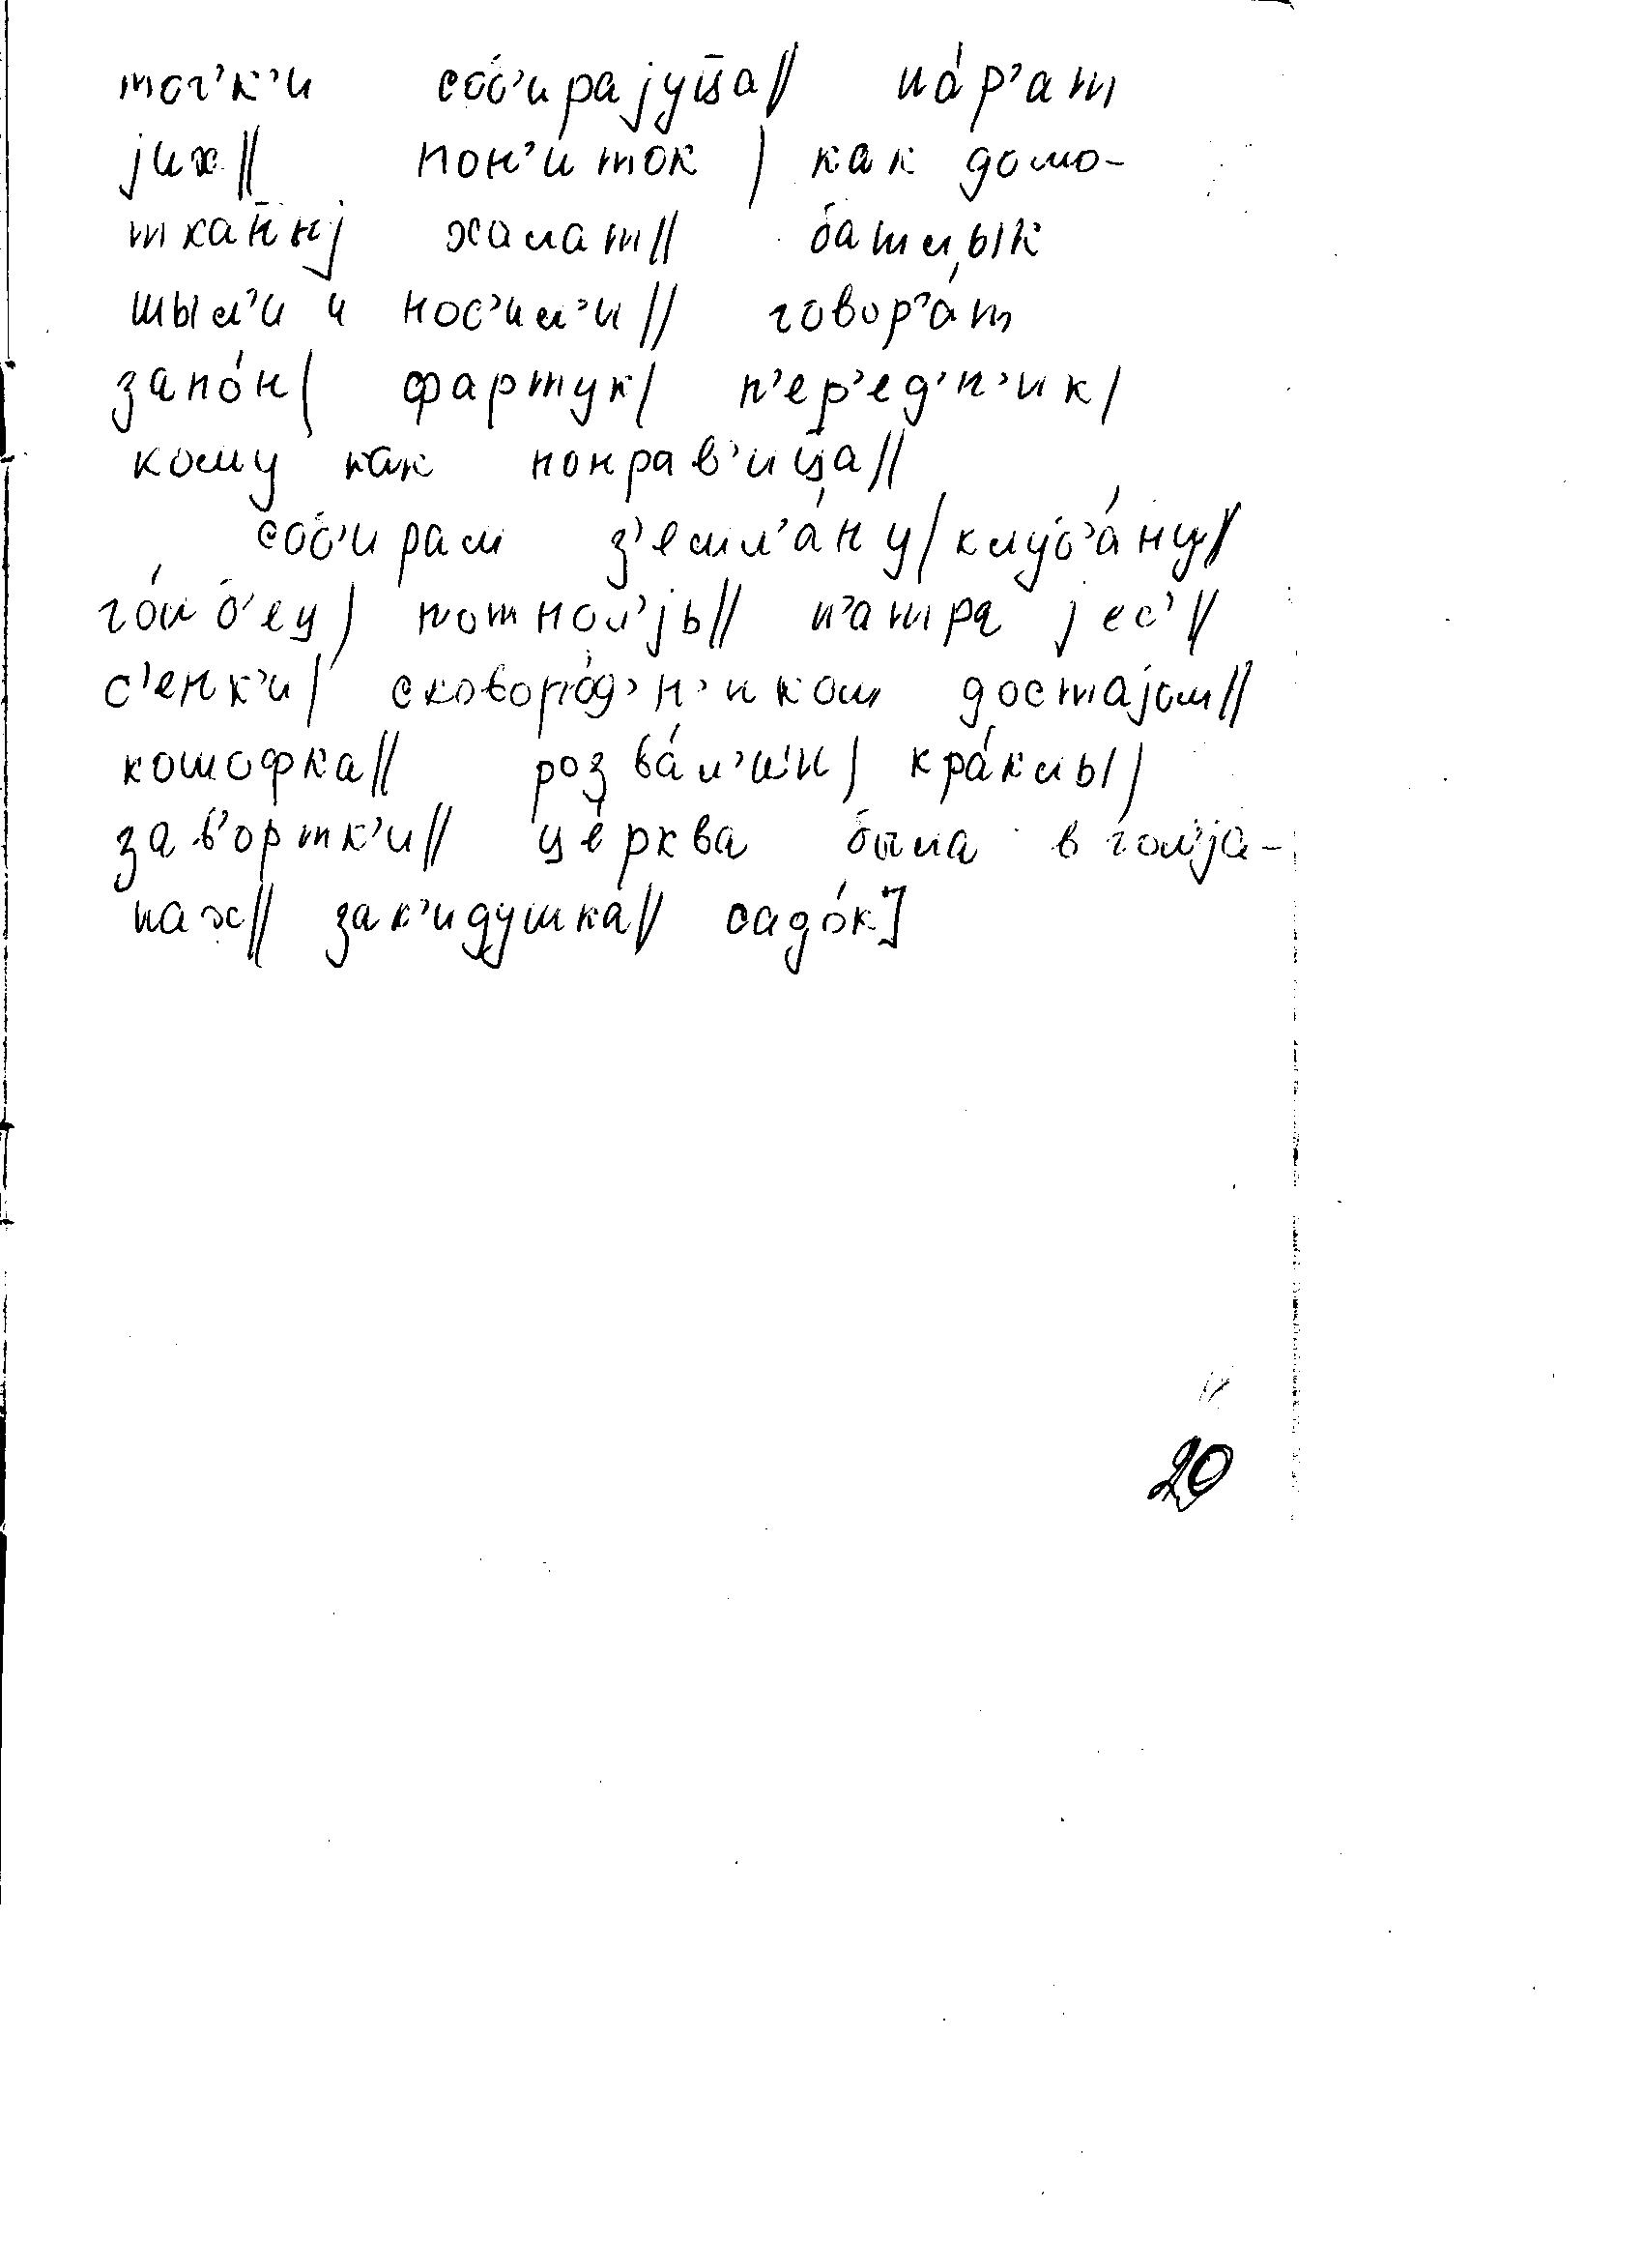 точ’к’и соб’ирајуц̅а// па́р’ат
јих// пон’иток / как домо-
ткан̅иј халат// башлык
шыл’и и нос’ил’и// говор’а́т
запо́н/ фартук/ п’ер’ед’н’ик/
кому как понрав’иц̅а//
соб’ирам з’емл’а́ну/ клуб’а́ну//
п’атра јес’//
с’енк’и/ сковоро́д’н’иком достајом//
кошофка// розва́л’н’и/ кра́клы/
зав’ортк’и// це́рква была в гол’ја-
нах// зак’идушка// садо́к]
20